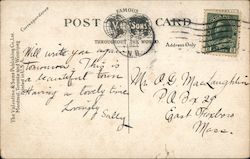 Correspondence
POST CARD
FAMOUS
THROUGHOUT THE WORLD
Address Only
The Valentine & Sons Publishing Co. Ltd.
Montreal, Toronto and Winnipeg
Will write you again
tomorrow. This is
a beautiful town
Having a lovely time
Lovingly
Sally
Mr. A. D. MacLaughlin
P.O. Box 29
East Foxboro
Mass.